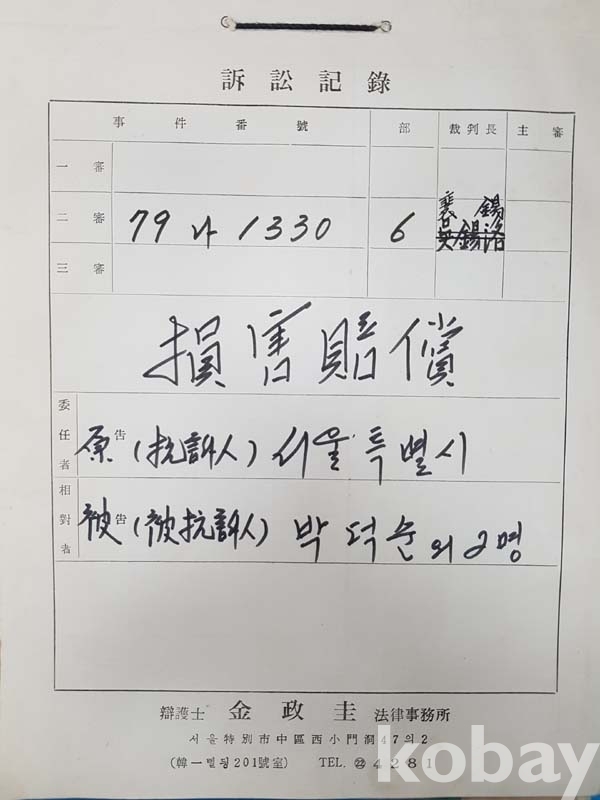 訴訟記錄
事件番號 部 裁判長 主審
一審
裵 錫
二審 79 나 1330 6
三審
損害賠償
委任者 原告 (抗訴人) 서울특별시
相對者 被告 (被抗訴人) 박덕순 외 2명
辯護士 金政圭 法律事務所
서울特別市中區西小門洞47의2
(韓一빌딩201號室) TEL. ㉒4281
kobay